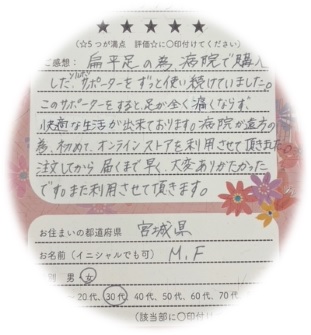 ★★★★★
(☆5つが満点 評価☆に○印付けてください)
ご感想: 扁平足の為病院で購入
した、サポーターをずっと使い続けていました。
このサポーターをすると、足が全く痛くならず、
快適な生活が出来ております。病院が遠方の
為、初めて、オンラインストアを利用させて頂きました
注文してから届くまで早く、大変ありがたかった
です。また利用させて頂きます。
お住まいの都道府県 宮城県
お名前(イニシャルでも可) M.F
別 男・女
20代、30代 40代、50代、60代、70代
(該当部に○印付け